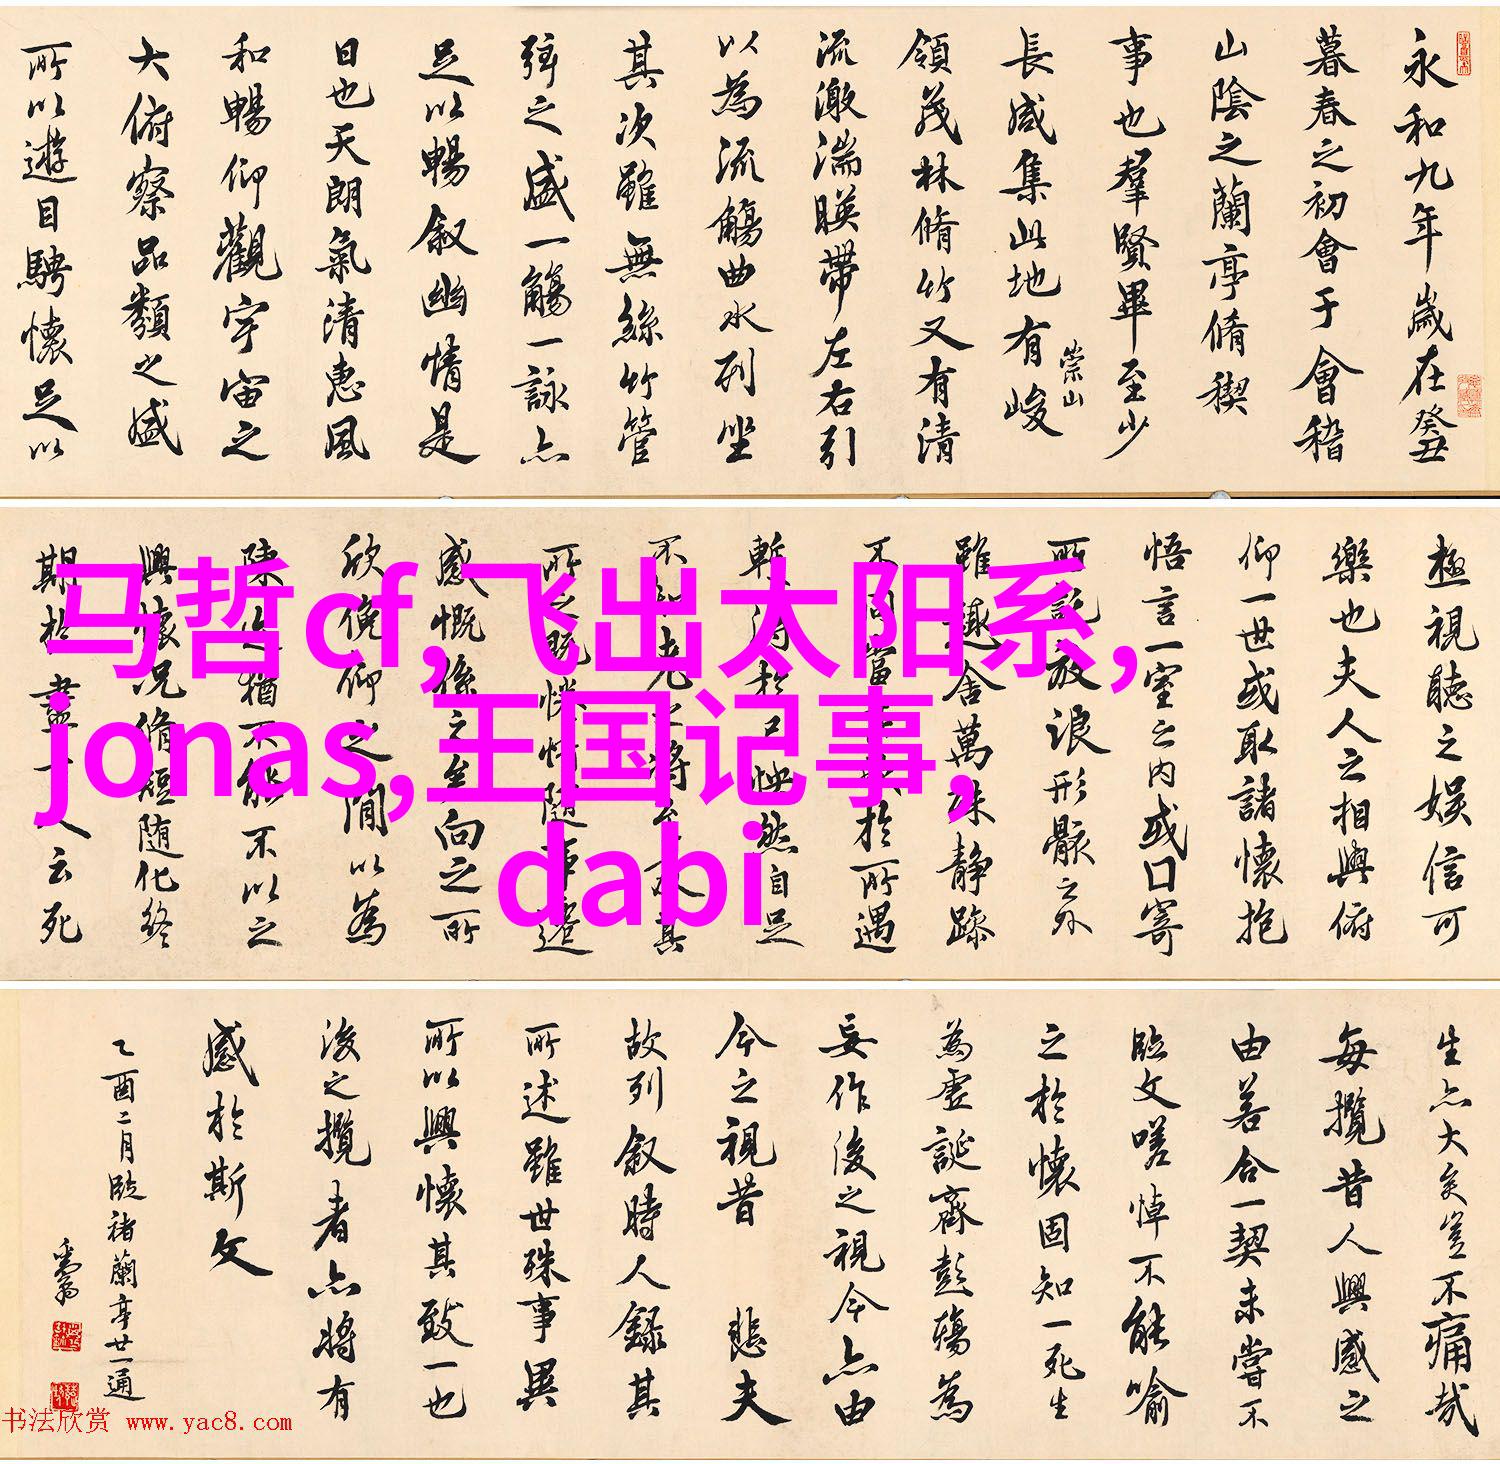 永和九年歲在癸丑
暮春之初會于會稽
山陰之蘭亭脩稧
事也羣賢畢至少
長咸集此地有崇山峻
領茂林脩竹又有清
流激湍暎帶左右引
以為流觴曲水列坐
其次雖無絲竹管
弦之盛一觴一詠亦
足以暢叙幽情是
日也天朗氣清惠風
和暢仰觀宇宙之
大俯察品類之盛
所以遊目騁懷足以
極視聽之娛信可
樂也夫人之相與俯
仰一世或取諸懷抱
悟言一室之內或因寄
所託放浪形骸之外
雖趣舍萬殊靜躁
不同當於所遇
暫得於己怏然自足
不知老之將至及其
所之既惓情隨事遷
感慨係之矣向之所
欣俛仰之閒以為
陳迹猶不能不以之
興懷況脩短隨化終
期於盡人云死
马哲cf,飞出太阳系,
jonas,王国记事,
dabi
生亦大矣豈不痛哉
每攬昔人興感之
由若合一契未嘗不
臨文嗟悼不能喻
之於懷固知一死生
為虛誕齊彭殤為
妄作後之視今亦由
今之視昔 悲夫
故列叙時人錄其
所述雖世殊事異
所以興懷其致一也
後之攬者亦將有
感於斯文
乙酉二月臨褚蘭亭廿一通
书法欣赏 www.yac8.com